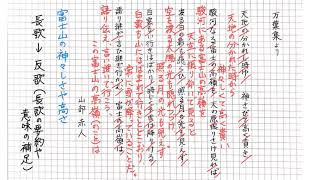 万葉集より
天地の分かれし時ゆ 神さびて高く貴き
天地の分かれた時から
神々しくて高く貴い
駿河なる富士の高嶺を 天の原振り放け見れば
駿河にある富士山の高嶺を
大空に振り仰いで見ると
渡る日の影も隠らひ 照る月の光も見えず
空を渡る太陽の光も隠れ
照る月の光も見えず
白雲もい行きはばかり 時じくそ雪は降りける
白雲も山にはばまれて行きとどこおり
常に雪が降っていることだ。
語り継ぎ言ひ継ぎ行かむ 富士の高嶺は
語り伝え、言い継いで行こう、
この富士山の高嶺(のこと)は
山部赤人
富士山の神々しさや高さ
長歌→反歌(長歌の要約や
意味の補足)